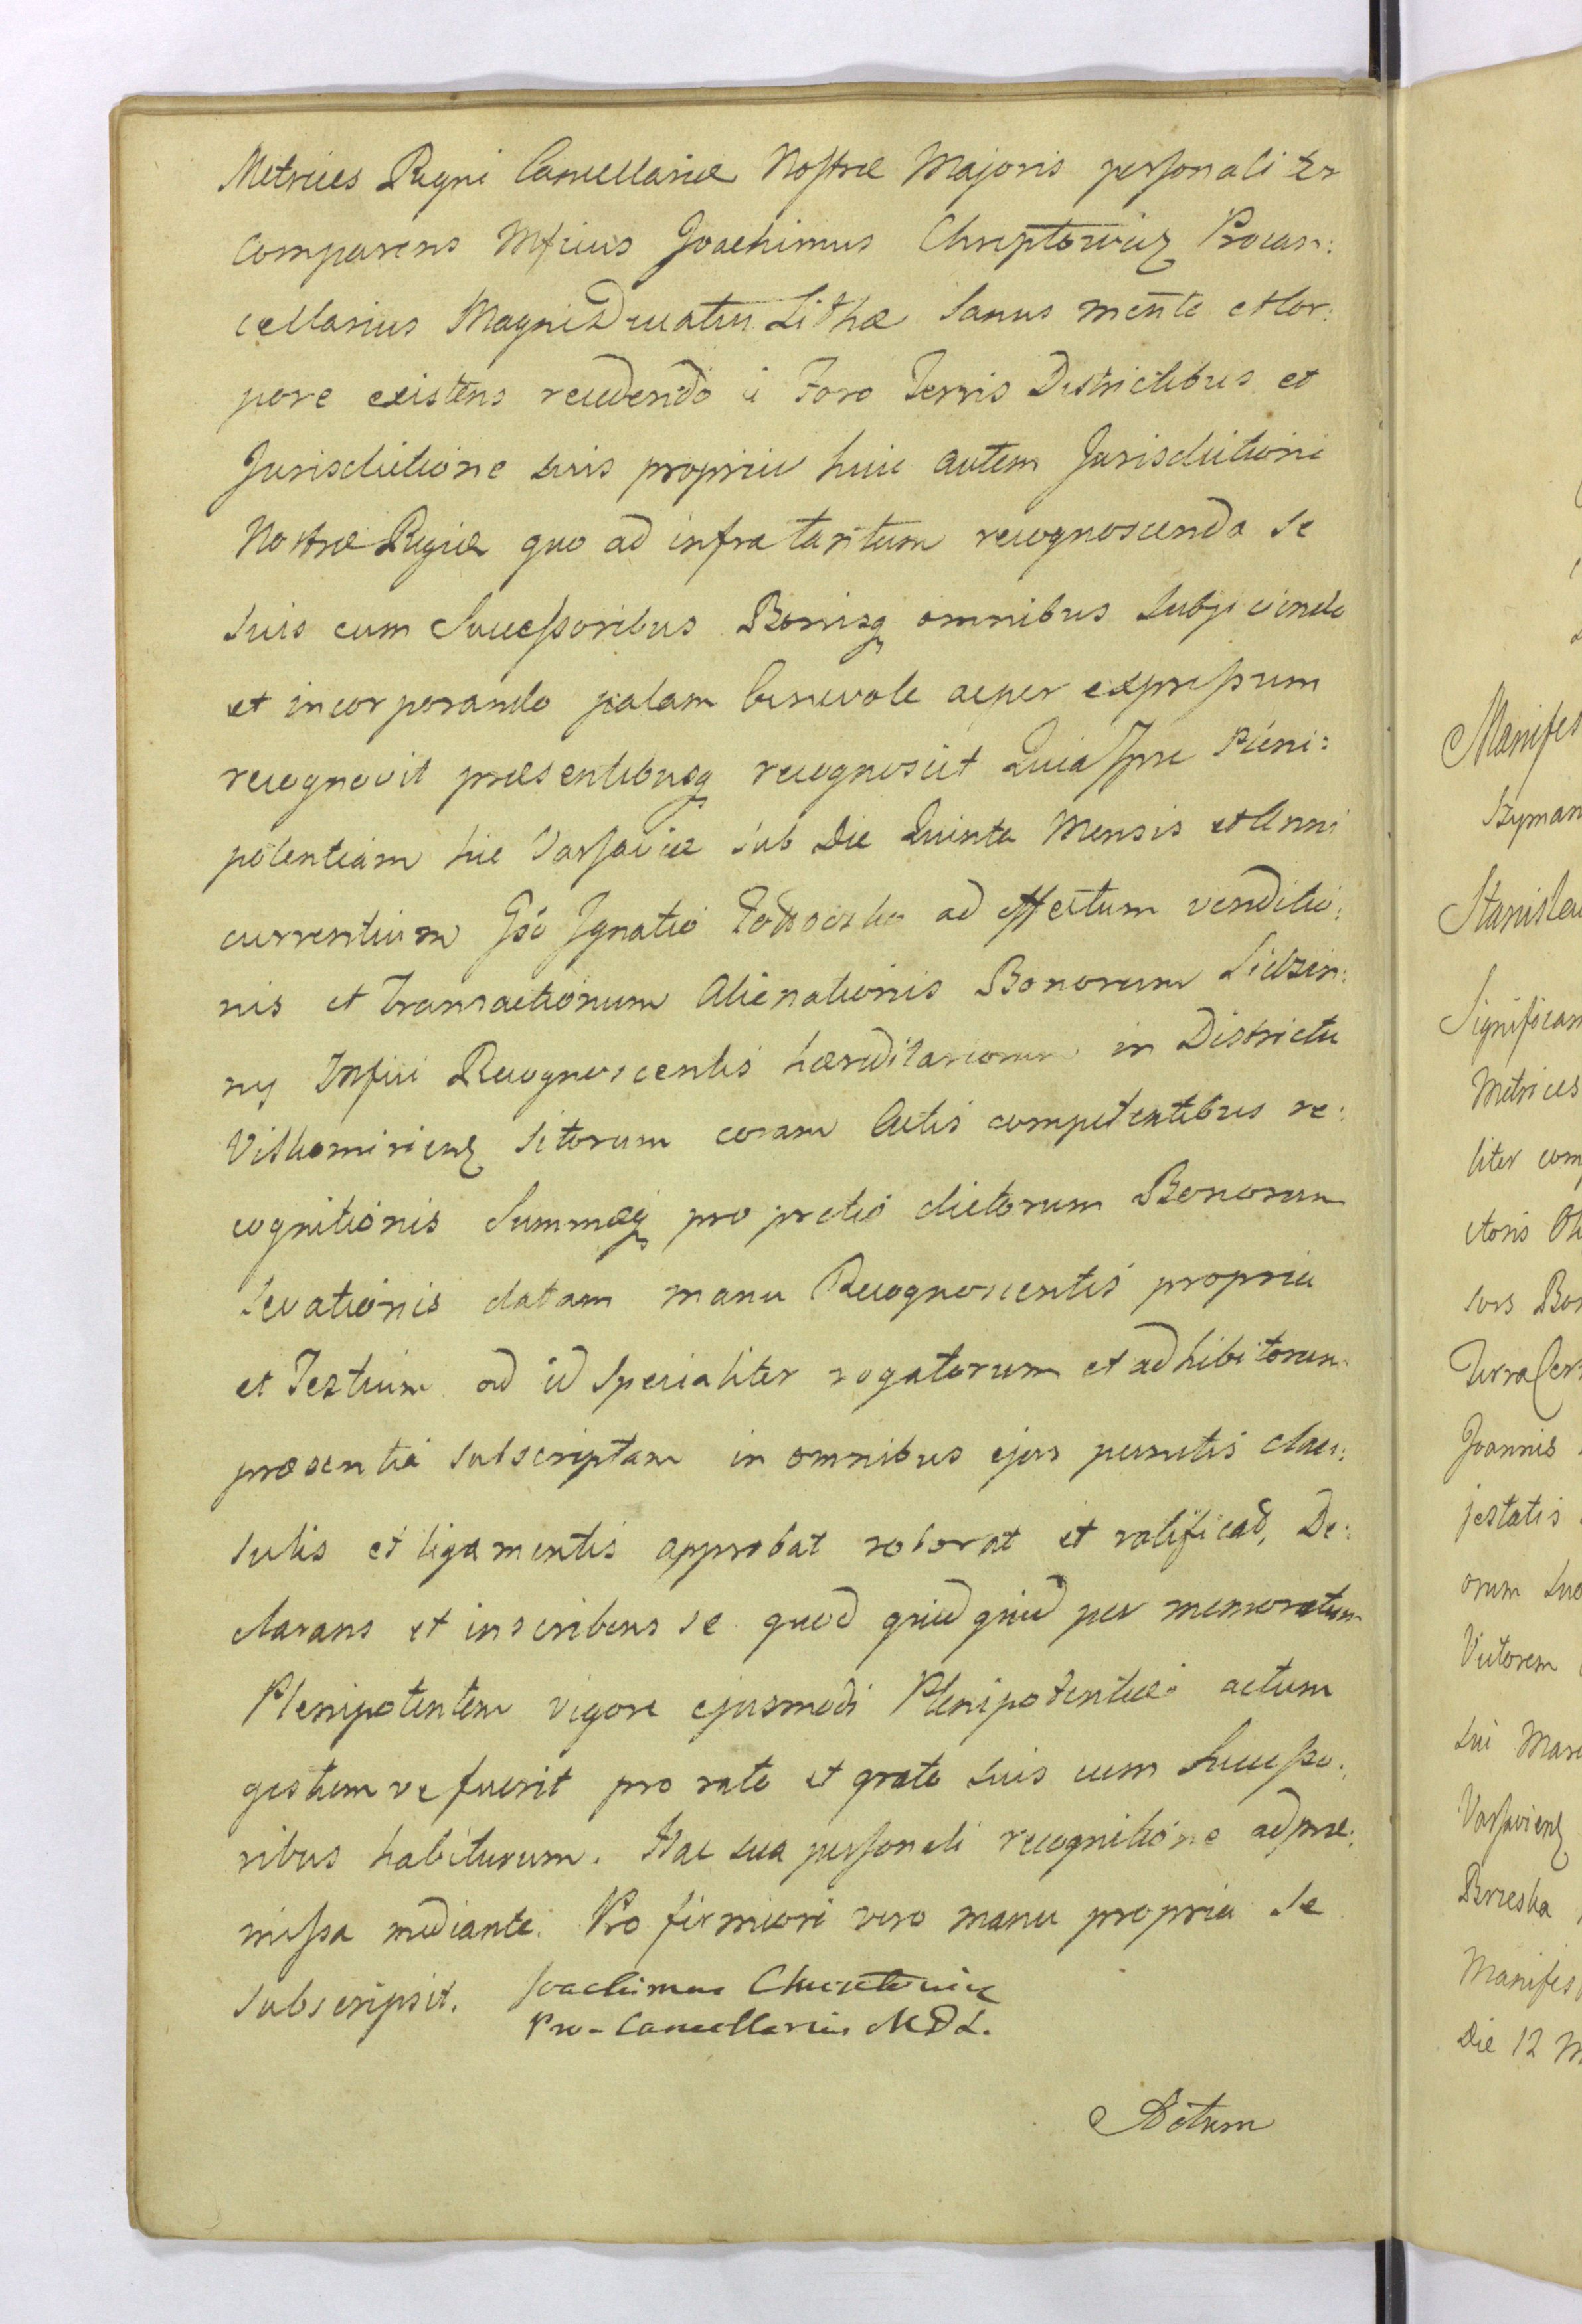 Metrices Regni Cancellariæ Nostræ Majoris personaliter
comparens Mfcus Joachimus Chreptowicz Procan:
cellarius Magni Ducatus Lithæ Sanus mente et Cor:
pore existens recedendo à Foro Terris Districtibus et
Jurisdictione suis propriis huic autem Jurisdictioni
Nostræ Regiæ quo ad infra tantum recognoscenda se
suis cum Successoribus Bonisq omnibus subjiciendo
et incorporando palam benevole ac per expressum
recognovit præsentibusq recognoscit Quia Ipse Pleni:
potentiam hic Varsaviæ sub Die Quinta Mensis et Anni
currentium Gso Ignatio ad effectum venditio:
nis et Transactionum Alienationis Bonorum
Mfici Recognoscentis hæreditariorum in Districtu
Vilkomiriens sitorum coram Actis competentibus re:
cognitionis Summæq pro pretio dictorum Bonorum
levationis datam manu Recognoscentis propria
et Testium ad id specialiter rogatorum et adhibitorum
præsentiâ subscriptam in omnibus ejus punctis clau:
sulis et ligamentis approbat roborat et ratificat, De:
clarans et inscribens se quod quidquid per memoratum
Plenipotentem vigore ejusmodi Plenipotentiæ actum
gestum ve fuerit pro rato et grato suis cum Successo:
ribus habiturum. Hac sua personali recognitione ad præ:
missa mediante. Pro firmiori vero manu propria se
subscripsit. Joachimus Chreptowicz
Pro-Cancellarius M D L.
Actum
Manifes
Szyman
Stanislau
Significam
Metrices
liter com
ctoris
sors Bon
Terra Cer
Joannis
jestatis
orum suo
Victorem
sui Man
Varsaviens
Brzeska
Manifes
Die 12 M